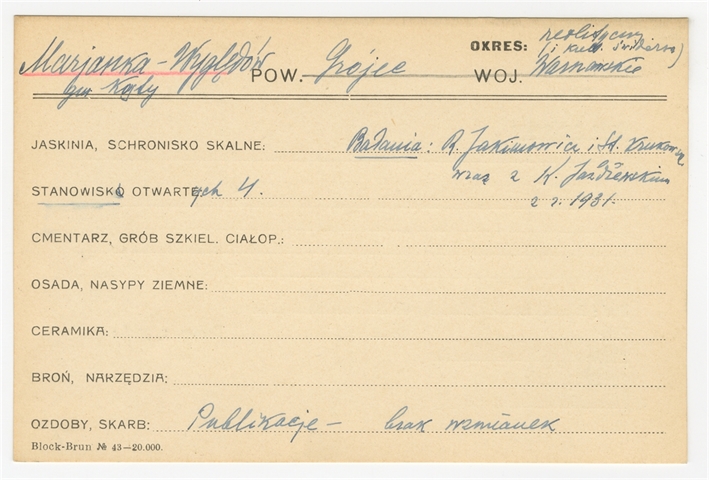 OKRES: neolityczny
(i kult. świderska)
Marjanka - Wyględów POW. Grójec WOJ. Warszawskie
gm. Kąty
JASKINIA, SCHRONISKO SKALNE: Badania: R. Jakimowicz i St. Krukowski
wraz z K. Jażdżewskim
STANOWISKO OTWARTE: ych 4.
z r. 1931.
CMENTARZ, GRÓB SZKIEL. CIAŁOP.:
OSADA, NASYPY ZIEMNE:
CERAMIKA:
BROŃ, NARZĘDZIA:
OZDOBY, SKARB: Publikacje - brak wzmianek
Block-Brun № 43—20.000.